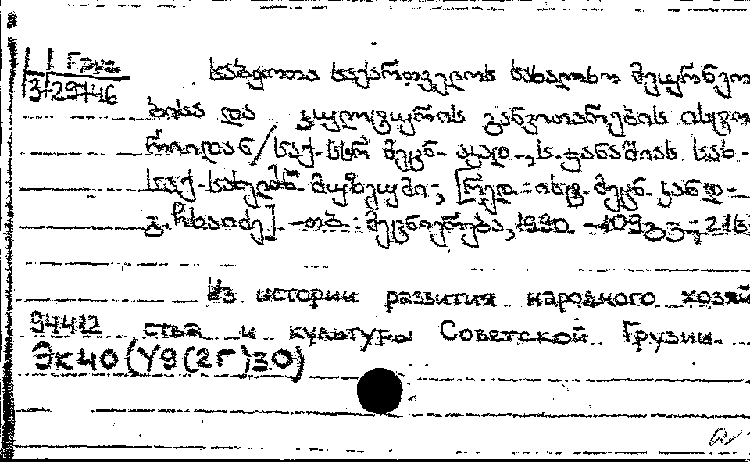 1 Груз
3/29446
საბჭოთა საქართველოს სახალხო მეურნეო
ბისა და კულტურის განვითარების ისტო
რიიდან / საქ. სსრ მეცნ. აკად., ს. ჯანაშიას სახ.
საქ. სახელმწ. მუზეუმი; [რედ.: ისტ. მეცნ. კანდ.
თბ.: მეცნიერება, 1990. - 109 გვ.; 21
Из истории развития народного хозяй
94412 ства и культуры Советской Грузии.
Эк40(У9(2Г)30)